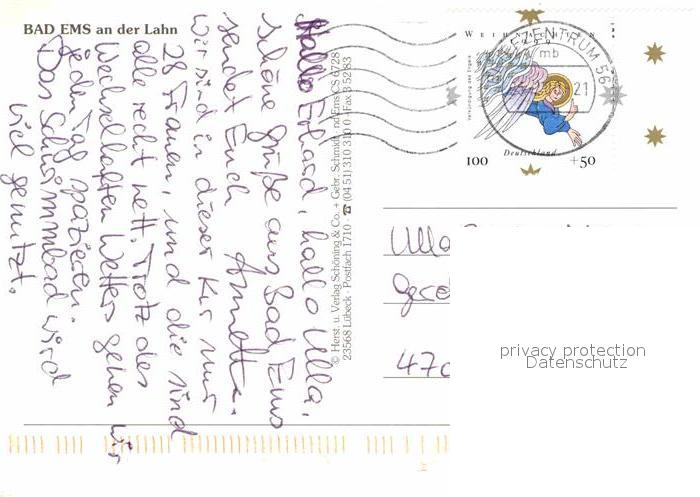 BAD EMS an der Lahn
Hallo Erhard, hallo Ulla,
schöne Grüße aus Bad Ems
sendet Euch Annette.
Wir sind in dieser Kur nur
28 Frauen, und die sind
alle recht nett. Trotz des
Wechselhaften Wetters gehen wir
jeden Tag spazieren.
Das Schwimmbad wird
viel genutzt.
© Herst. u. Verlag Schöning & Co. + Gebr. Schmidt
23568 Lübeck · Postfach 1710 · ☎ (04 51) 310 310 · Fax 3 52 83
Ems CS 6728
WEIHNACHTEN
Verkündigung des Engels
ZENTRUM 56
mb
21
100 Deutschland +50
Ulla
470
privacy protection
Datenschutz